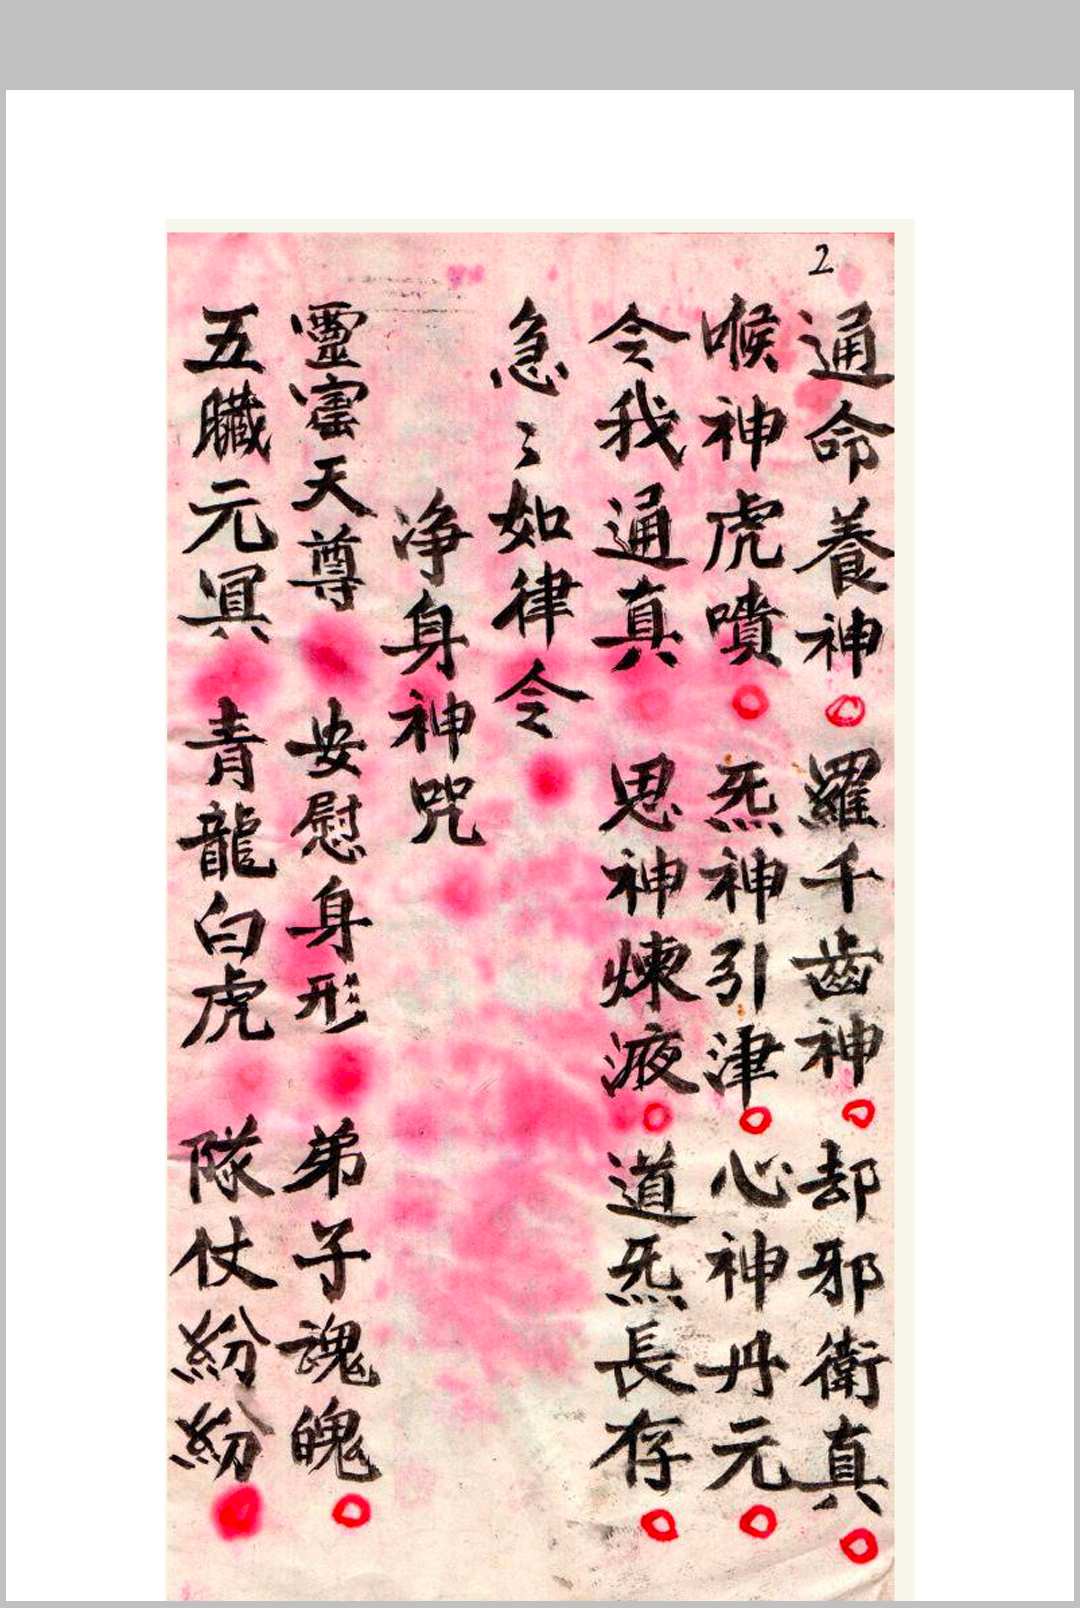 2
通命養神 羅千齒神 却邪衛真
喉神虎噴 炁神引津 心神丹元
令我通真 思神煉液 道炁長存
急〻如律令
净身神咒
靈寳天尊 安慰身形 弟子魂魄
五臟元冥 青龍白虎 隊仗紛紛